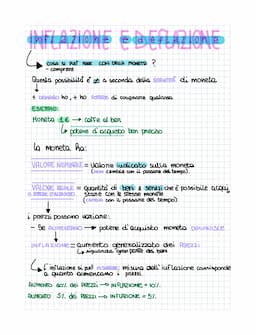 INFLAZIONE E DEFLAZIONE
COSA SI PUÒ FARE CON DELLA MONETA ?
- comprare
Questa possibilità è ≠ a seconda della QUANTITÀ di moneta
+ denaro ho, + ho potere di comprare qualcosa
ESEMPIO:
Moneta 1€ → caffè al bar
potere d'acquisto ben preciso
la moneta ha:
VALORE NOMINALE = valore indicato sulla moneta
(non cambia con il passare del tempo)
VALORE REALE = quantità di beni e servizi che è possibile acqui
stare con le stesse monete
(cambia con il passare del tempo)
i prezzi possono variare:
- Se AUMENTANO → potere d'acquisto moneta DIMINUISCE
INFLAZIONE = aumento generalizzato dei PREZZI
riguarda gran parte dei beni
L'inflazione si può misurare; misura dell'inflazione corrisponde
a quanto aumentano i prezzi.
AUMENTO 10% dei PREZZI → INFLAZIONE = 10%.
AUMENTO 5% dei PREZZI → INFLAZIONE = 5%.